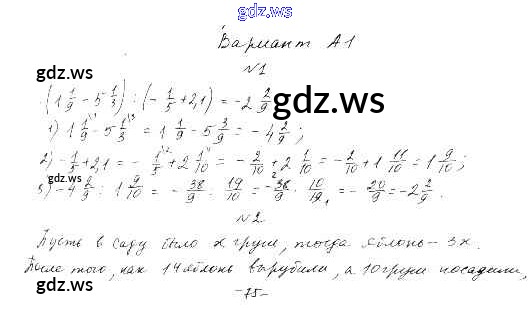 gdz.ws
Вариант А1
gdz.ws
№1
(1 1/9 - 5 1/3) : (- 1/5 + 2,1) = -2 2/9
gdz.ws
1) 1 1/9 - 5 1/3 = 1 1/9 - 5 3/9 = -4 2/9;
2) - 1/5 + 2,1 = - 1/5 + 2 1/10 = - 2/10 + 2 1/10 = - 2/10 + 1 11/10 = 1 9/10;
gdz.ws
3) -4 2/9 : 1 9/10 = - 38/9 : 19/10 = - 38/9 · 10/19 = - 20/9 = -2 2/9.
№2
Пусть в саду было x груш, тогда яблонь - 3x.
После того, как 14 яблонь вырубили, а 10 груш посадили,
gdz.ws
-75-